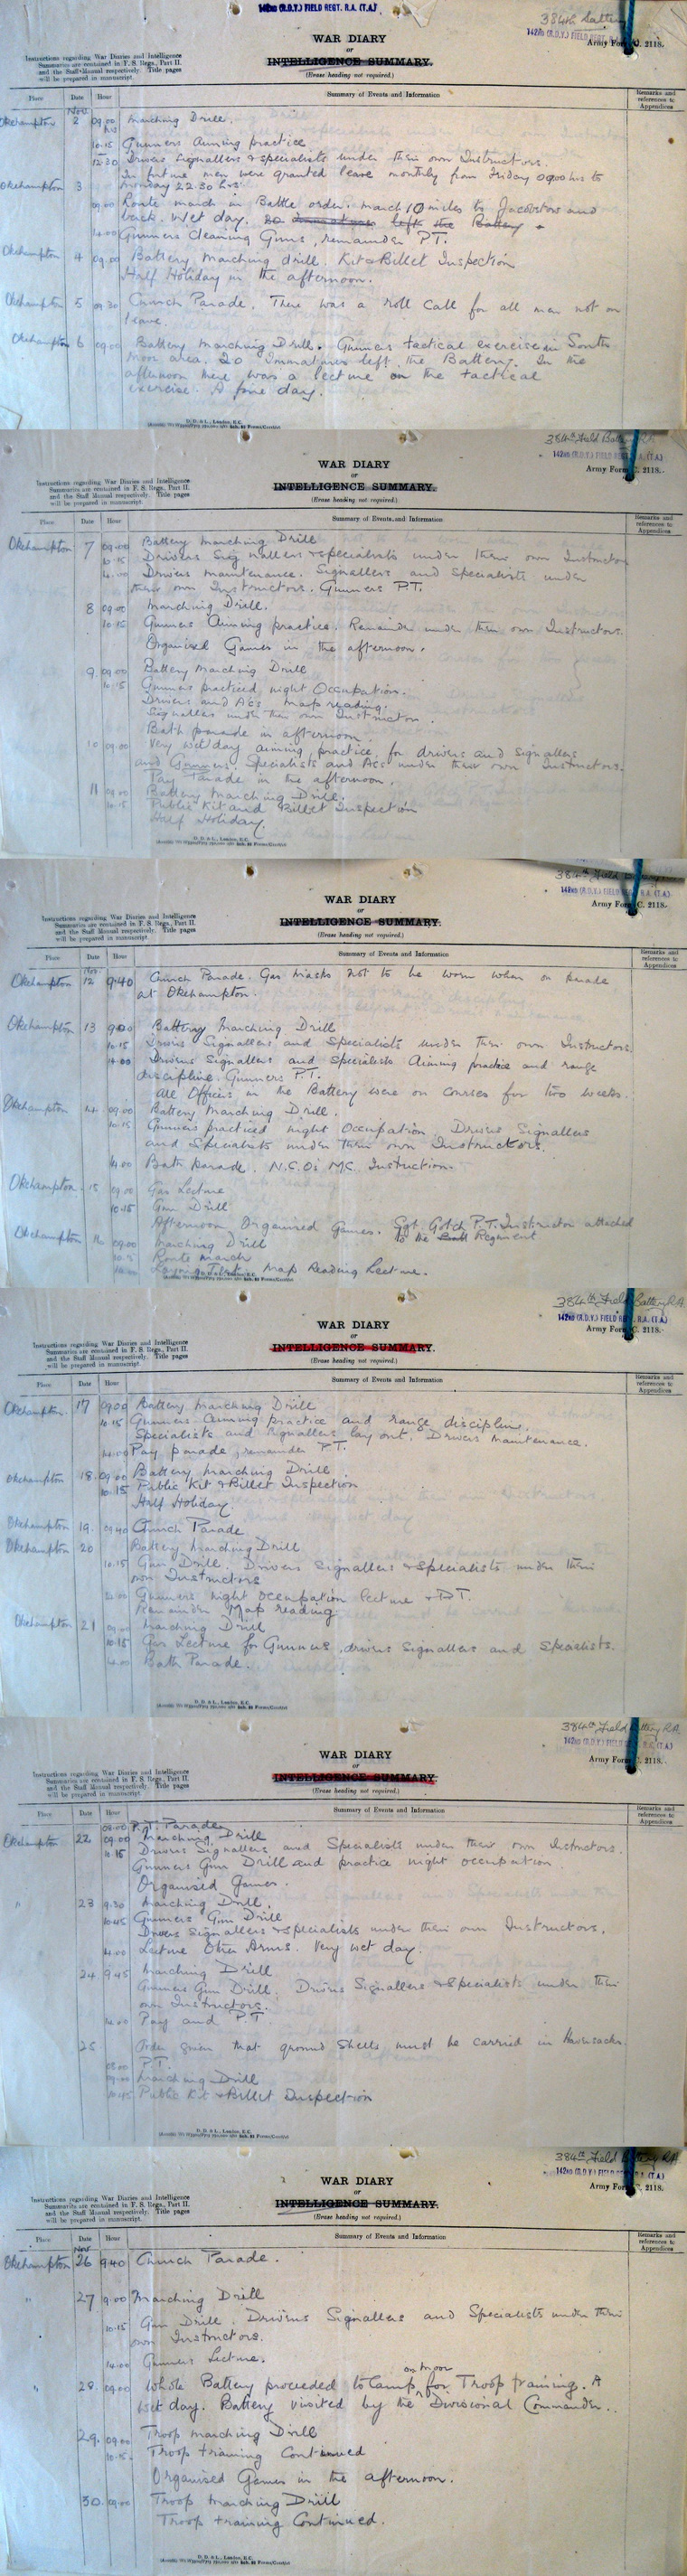 142ND (R.D.Y.) FIELD REGT. R.A. (T.A.)
384th Battery
142ND (R.D.Y.) FIELD REGT.
WAR DIARY
or
INTELLIGENCE SUMMARY.
(Erase heading not required.)
Army Form C. 2118.
Instructions regarding War Diaries and Intelligence
Summaries are contained in F. S. Regs., Part II.
and the Staff Manual respectively. Title pages
will be prepared in manuscript.
Place Date Hour Summary of Events and Information Remarks and references to Appendices
Nov.
Okehampton 2 09.00 hrs Marching Drill.
10.15 Gunners Aiming practice
12.30 Drivers Signallers & specialists under their own Instructors.
In future men were granted leave monthly from Friday 0900 hrs to
Monday 22.30 hrs.
Okehampton 3
09.00 Route march in Battle order. March 10 miles to Jacobstow and
back. Wet day. 20 Immatures left the Battery
14.00 Gunners Cleaning Guns, remainder P.T.
Okehampton 4 09.00 Battery Marching drill. Kit & Billet Inspection
Half Holiday in the afternoon.
Okehampton 5 09.30 Church Parade. There was a roll call for all men not on
leave.
Okehampton 6 09.00 Battery Marching Drill. Gunners tactical exercise in South
Moor area. 20 Immatures left the Battery. In the
afternoon there was a lecture on the tactical
exercise. A fine day.
D. D. & L., London, E.C.
384th Field Battery RA
142ND (R.D.Y.) FIELD REGT. R.A. (T.A.)
WAR DIARY
or
INTELLIGENCE SUMMARY.
(Erase heading not required.)
Army Form C. 2118.
Instructions regarding War Diaries and Intelligence
Summaries are contained in F. S. Regs., Part II.
and the Staff Manual respectively. Title pages
will be prepared in manuscript.
Place Date Hour Summary of Events and Information Remarks and references to Appendices
Okehampton 7 09.00 Battery Marching Drill
10.15 Drivers Signallers & specialists under their own Instructors
14.00 Drivers maintenance. Signallers and Specialists under
their own Instructors. Gunners P.T.
8 09.00 Marching Drill.
10.15 Gunners Aiming practice. Remainder under their own Instructors.
Organised Games in the afternoon.
9. 09.00 Battery Marching Drill
10.15 Gunners practiced night Occupation.
Drivers and Acs map reading.
Signallers under their own Instructor.
Bath parade in afternoon.
10 09.00 Very wet day aiming practice for drivers and Signallers
and Gunners. Specialists and Acs under their own Instructors.
Pay Parade in the afternoon.
11 09.00 Battery Marching Drill.
10.15 Public Kit and Billet Inspection
Half Holiday.
D. D. & L., London, E.C.
384th Field Battery RA
142ND (R.D.Y.) FIELD REGT. R.A. (T.A.)
WAR DIARY
or
INTELLIGENCE SUMMARY.
(Erase heading not required.)
Army Form C. 2118.
Instructions regarding War Diaries and Intelligence
Summaries are contained in F. S. Regs., Part II.
and the Staff Manual respectively. Title pages
will be prepared in manuscript.
Place Date Hour Summary of Events and Information Remarks and references to Appendices
Nov.
Okehampton 12 9.40 Church Parade. Gas Masks not to be worn when on parade
at Okehampton.
Okehampton 13 900 Battery Marching Drill
10.15 Drivers Signallers and Specialists under their own Instructors.
14.00 Drivers Signallers and Specialists Aiming practice and range
discipline. Gunners P.T.
All Officers in the Battery were on courses for two weeks.
Okehampton 14. 09.00 Battery Marching Drill.
10.15 Gunners practiced night Occupation. Drivers Signallers
and Specialists under their own Instructors.
14.00 Bath parade. N.C.O's M.G. Instruction.
Okehampton 15 09.00 Gas Lecture
10.15 Gun Drill
Afternoon Organised Games. Sgt. Gotch P.T. Instructor attached
to the Regiment
Okehampton 16 09.00 Marching Drill
10.15 Route March
Laying Test. Map Reading Lecture.
384th Field Battery RA.
142ND (R.D.Y.) FIELD REGT. R.A. (T.A.)
WAR DIARY
or
INTELLIGENCE SUMMARY.
(Erase heading not required.)
Army Form C. 2118.
Instructions regarding War Diaries and Intelligence
Summaries are contained in F. S. Regs., Part II.
and the Staff Manual respectively. Title pages
will be prepared in manuscript.
Place Date Hour Summary of Events and Information Remarks and references to Appendices
Okehampton 17 09.00 Battery Marching Drill
10.15 Gunners Aiming practice and range discipline.
Specialists and Signallers lay out. Drivers Maintenance.
14.00 Pay parade, remainder P.T.
Okehampton 18. 09.00 Battery Marching Drill
10.15 Public Kit & Billet Inspection
Half Holiday.
Okehampton 19. 09.40 Church Parade
Okehampton 20 Battery Marching Drill
10.15 Gun Drill. Drivers Signallers & Specialists under their
own Instructors
14.00 Gunners night occupation lecture & P.T.
Remainder Map reading
Okehampton 21 09.00 Marching Drill
10.15 Gas Lecture for Gunners, drivers Signallers and Specialists.
14.00 Bath Parade.
D. D. & L., London, E.C.
384th Field Battery R.A.
142ND (R.D.Y.) FIELD REGT. R.A. (T.A.)
WAR DIARY
or
INTELLIGENCE SUMMARY
(Erase heading not required.)
Army Form C. 2118.
Instructions regarding War Diaries and Intelligence
Summaries are contained in F. S. Regs., Part II.
and the Staff Manual respectively. Title pages
will be prepared in manuscript.
Place Date Hour Summary of Events and Information Remarks and references to Appendices
08.00 P.T. Parade
Okehampton 22 09.00 Marching Drill
10.15 Drivers Signallers and Specialists under their own Instructors.
Gunners Gun Drill and practice night occupation.
Organised Games.
" 23 9.30 Marching Drill.
10.45 Gunners Gun Drill
Drivers Signallers & specialists under their own Instructors.
14.00 Lecture Other Arms. Very wet day.
24 9.45 Marching Drill
Gunners Gun Drill. Drivers Signallers & Specialists under their
own Instructors.
14.00 Pay and P.T
25 Order given that ground Sheets must be carried in Haversacks.
08.00 P.T.
09.00 Marching Drill
10.45 Public Kit & Billet Inspection
D. D. & L., London, E.C.
384th Field Battery RA
142ND (R.D.Y.) FIELD REGT. R.A. (T.A.)
WAR DIARY
or
INTELLIGENCE SUMMARY.
(Erase heading not required.)
Army Form C. 2118.
Instructions regarding War Diaries and Intelligence
Summaries are contained in F. S. Regs., Part II.
and the Staff Manual respectively. Title pages
will be prepared in manuscript.
Place Date Hour Summary of Events and Information Remarks and references to Appendices
Nov
Okehampton 26 9.40 Church Parade.
" 27 9.00 Marching Drill
10.15 Gun Drill. Drivers Signallers and Specialists under their
own Instructors.
14.00 Gunners Lecture.
" 28. 09.00 Whole Battery proceeded to Camp on Moor for Troop training. A
wet day. Battery visited by the Divisional Commander..
29. 09.00 Troop Marching Drill
10.15. Troop training Continued
Organised Games in the afternoon.
30. 09.00 Troop Marching Drill
Troop training Continued.
D. D. & L., London, E.C.